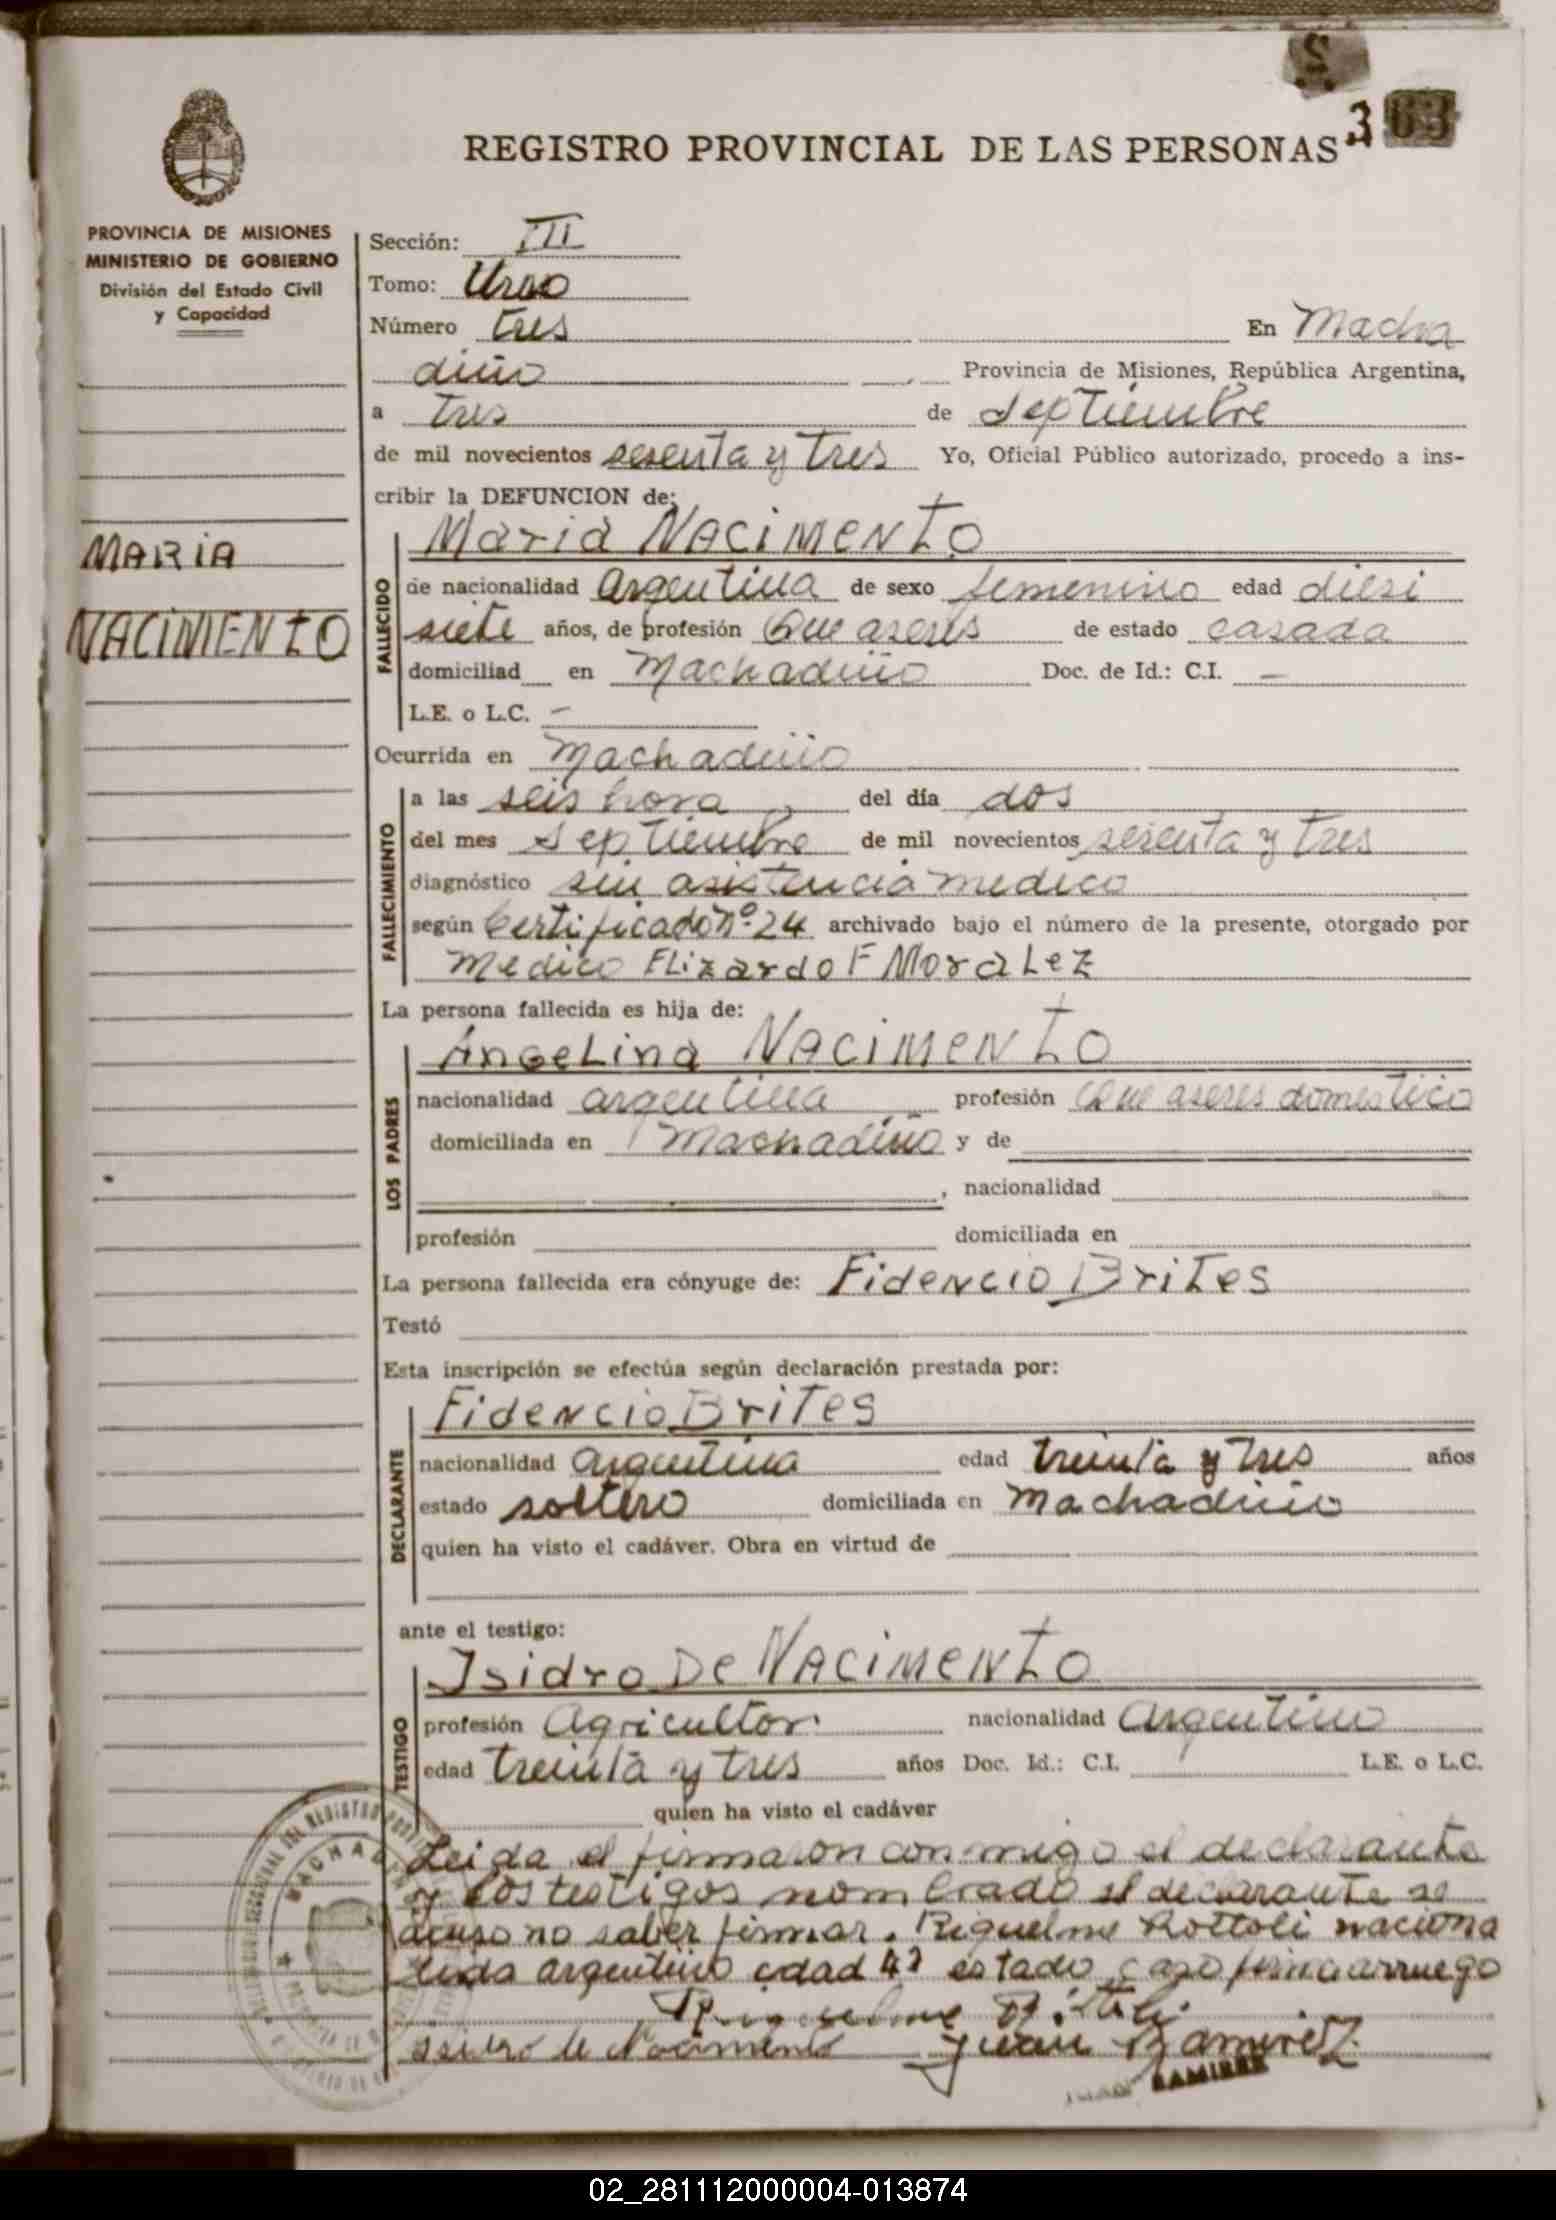 REGISTRO PROVINCIAL DE LAS PERSONAS
3 03
PROVINCIA DE MISIONES
MINISTERIO DE GOBIERNO
División del Estado Civil
y Capacidad
MARIA
NACIMIENTO
Sección: III
Tomo: Uno
Número tres En Macha
diño Provincia de Misiones, República Argentina,
a tres de Septiembre
de mil novecientos sesenta y tres Yo, Oficial Público autorizado, procedo a ins-
cribir la DEFUNCION de:
Maria NACIMENTO
FALLECIDO
de nacionalidad Argentina de sexo femenino edad diesi
siete años, de profesión Que aseres de estado casada
domiciliad en Machadiño Doc. de Id.: C.I. —
L.E. o L.C. —
Ocurrida en Machadiño
FALLECIMIENTO
a las seis hora del día dos
del mes septiembre de mil novecientos sesenta y tres
diagnóstico sin asistencia medico
según Certificado nº 24 archivado bajo el número de la presente, otorgado por
Medico ELizardo F MoraLez
La persona fallecida es hija de:
LOS PADRES
AngeLina NACIMENTO
nacionalidad argentina profesión Que aseres domestico
domiciliada en Machadiño y de
, nacionalidad
profesión domiciliada en
La persona fallecida era cónyuge de: Fidencio Brites
Testó
Esta inscripción se efectúa según declaración prestada por:
DECLARANTE
Fidencio Brites
nacionalidad Argentina edad treinta y tres años
estado soltero domiciliada en Machadiño
quien ha visto el cadáver. Obra en virtud de
ante el testigo:
TESTIGO
Isidro De NACIMENTO
profesión Agricultor nacionalidad Argentino
edad treinta y tres años Doc. Id.: C.I. L.E. o L.C.
quien ha visto el cadáver
Leida el firmaron con migo el declarante
y los testigos nombrado el declarante se
acuso no saber firmar. Riquelme Rottoli naciona
lida argentino edad 42 estado caso firma arruego
Riquelme
de Nacimento Juan Ramirez
RAMIREZ
02_281112000004-013874